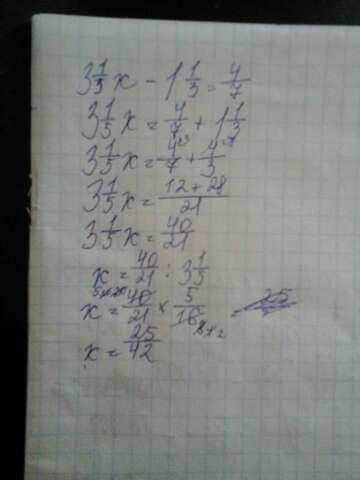 3 1/5 x - 1 1/3 = 4/7
3 1/5 x = 4/7 + 1 1/3
3 1/5 x = 4/7 + 4/3
3 1/5 x = 12+28/21
3 1/5 x = 40/21
x = 40/21 : 3 1/5
x = 40/21 × 5/16
x = 25/42